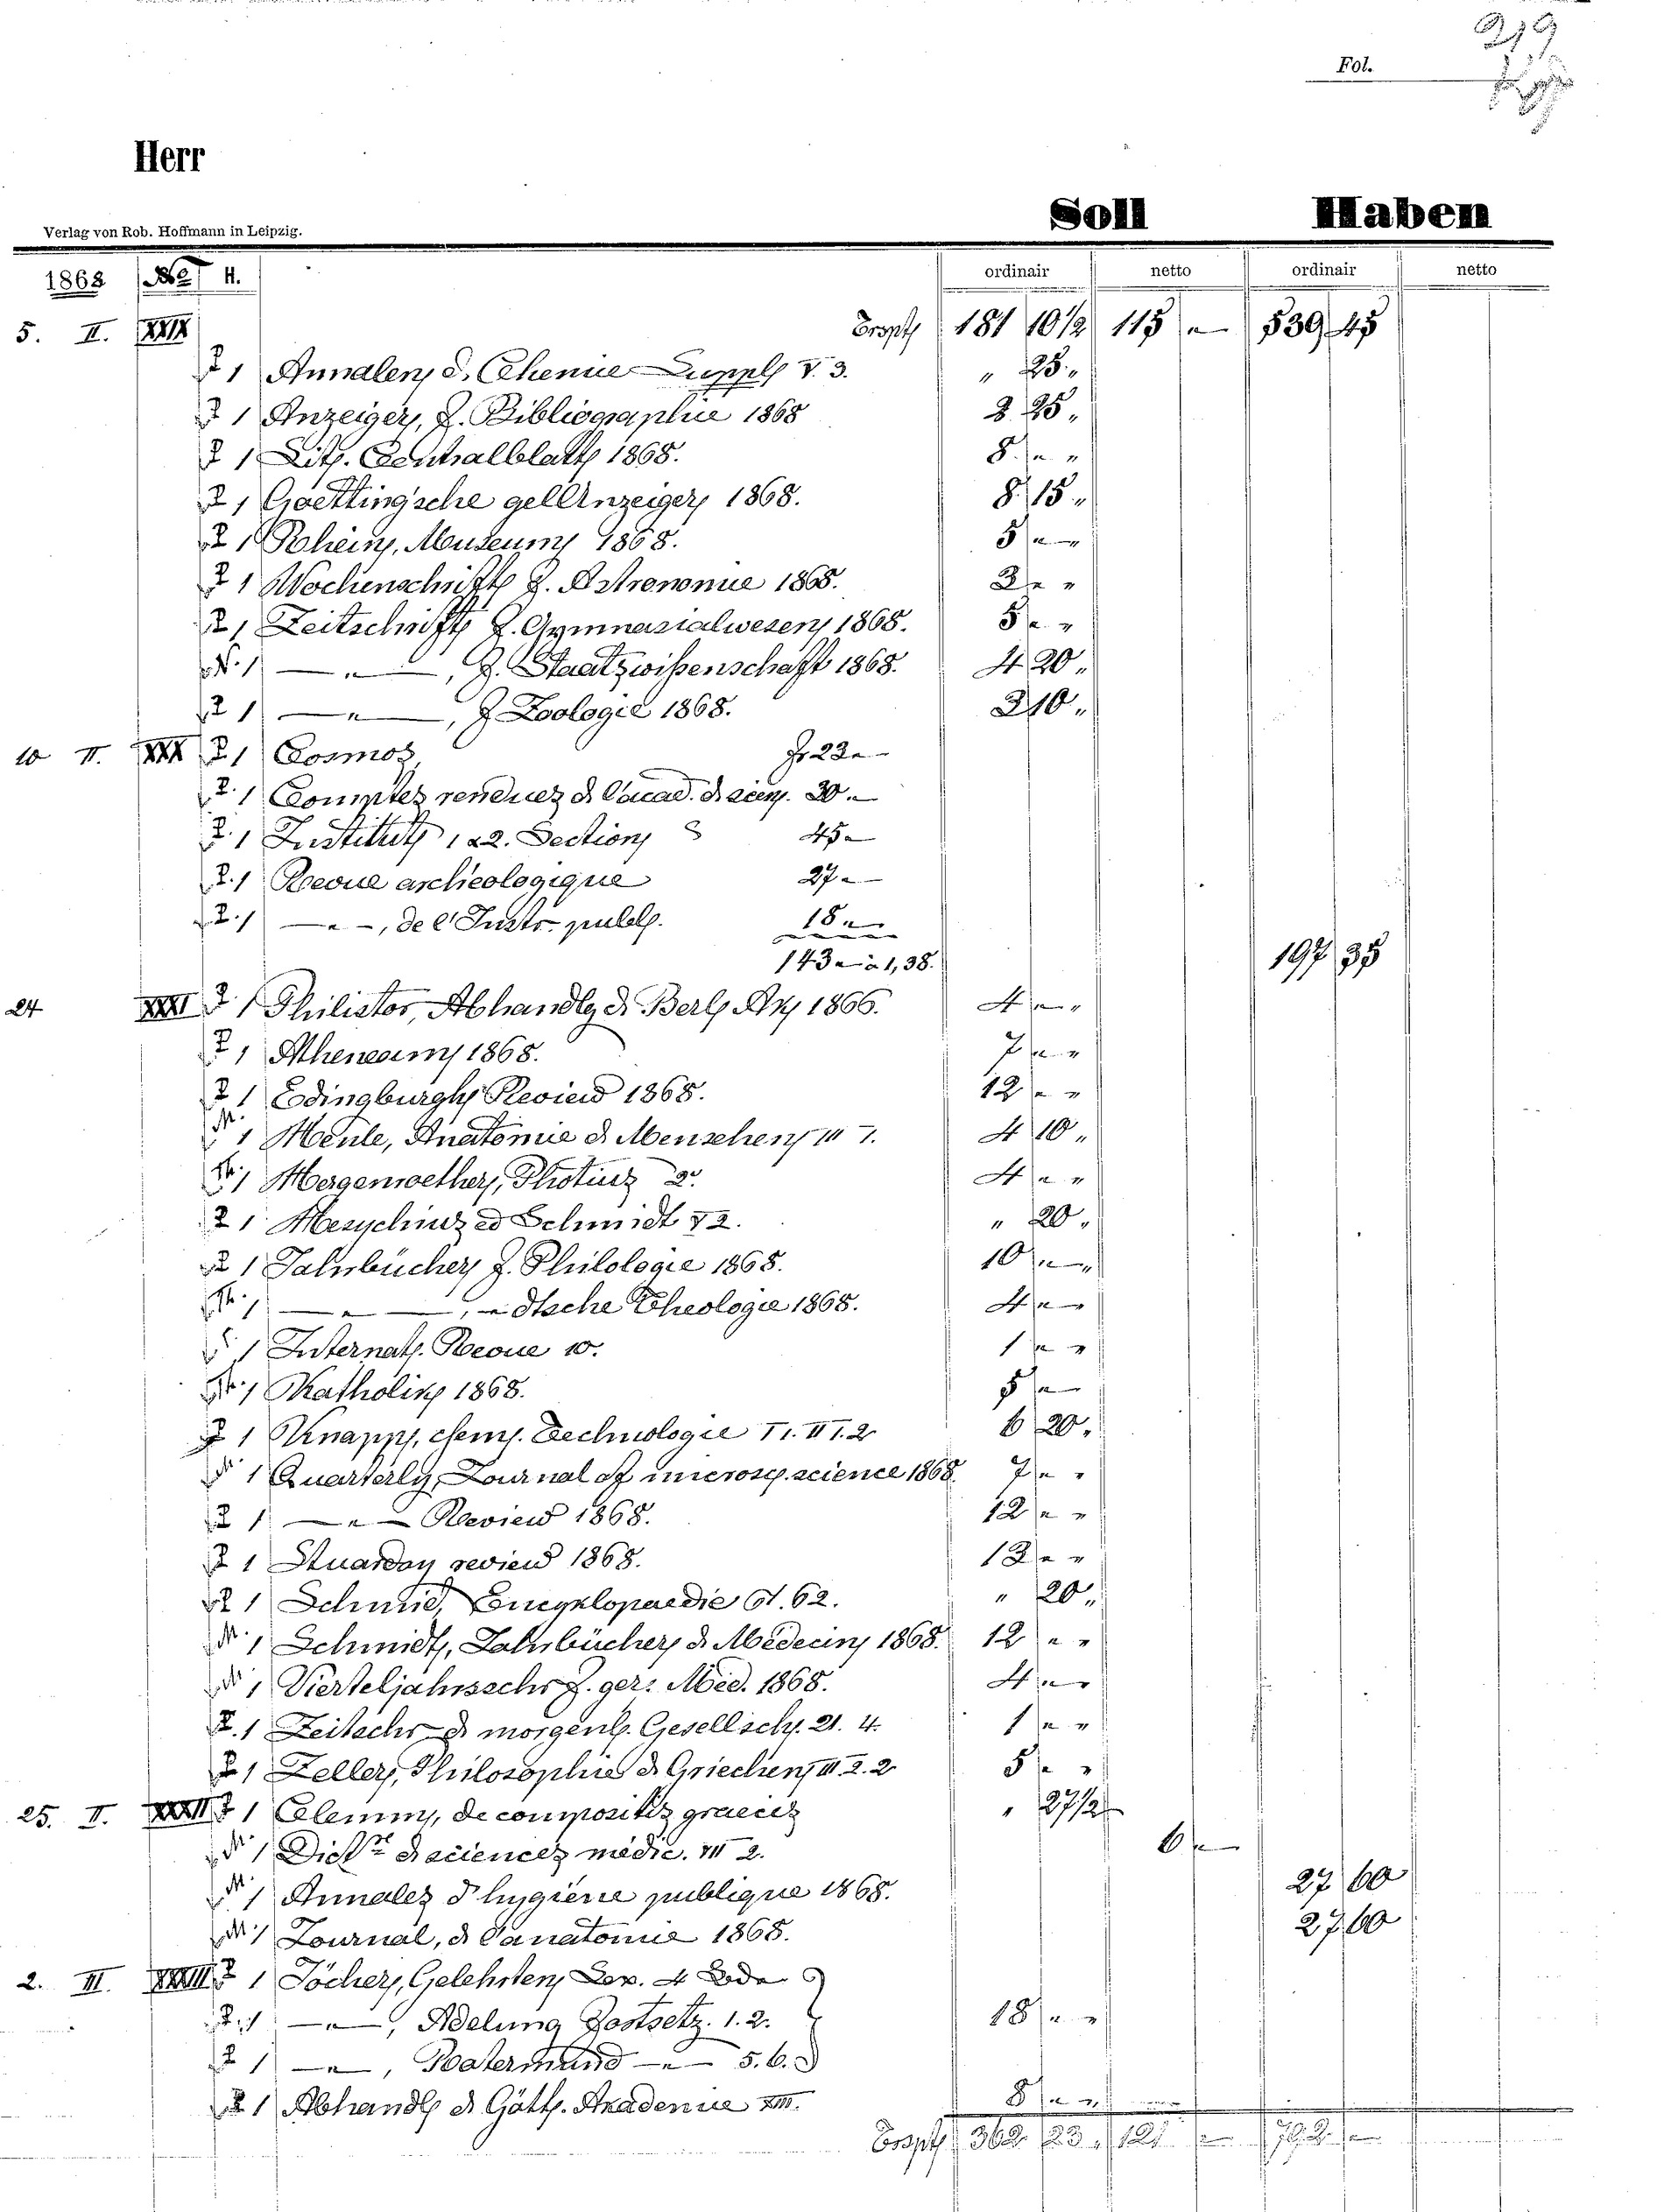 219
Fol.
Herr
Soll Haben
Verlag von Rob. Hoffmann in Leipzig.
1868 No H. ordinair netto ordinair netto
5. II. XXIX 181 10 1/2 115 „ — 539 45
1 Annalen, d. Chemie Suppl V. 3. „ 25 „
1 Anzeiger, f. Bibliographie 1868 2 25 „
1 Lit. Centralblatt 1868. 8. „ „
1 Goetting'sche gel Anzeiger 1868. 8. 15 „
1 Rhein. Museum 1868. 5 „ —
1 Wochenschrift f. Astronomie 1868. 3 „ „
1 Zeitschrift f. Gymnasialwesen 1868. 5 „ „
N. 1 — „ —, f. Staatswißenschaft 1868. 4 20 „
1 — „ —, f Zoologie 1868. 2 10 „
10 II. XXX 1 Cosmos fr 23 „ —
1 Comptes rendues d. l'acad. d. scien. 30 „ —
1 Institut 1 & 2. Section 45 „ —
1 Revue archeologique 27 „ —
1 — „ —, de l'Instr. publ. 18 „ —
143 „ — à 1,38. 197 35
24 XXXI 1 Philistos, Abhandlg d. Berl. Ak 1866. 4 „ „
1 Atheneum 1868. 7 „ „
1 Edingburgh Review 1868. 12 „ „
1 Henle, Anatomie d. Menschen III 1. 4 10 „
1 Hergenroether, Photius 2. 4 „ „
1 Hesychius ed Schmidt 2. „ 20 „
1 Jahrbücher f. Philologie 1868. 10 „ „
1 — „ —, „ dtsche Theologie 1868. 4 „ „
1 Internat. Revue 10. 1 „ „
1 Katholik 1868. 5 „ —
1 Knapp, chem. Technologie I 1. II 1. 2 6 20 „
1 Quarterly Journal of microsc. science 1868. 7 „ „
1 — „ — Review 1868. 12 „ „
1 review 1868. 12 „ „
1 Schmid, Encyklopaedie 61. 62. „ 20 „
1 Schmidt, Jahrbücher d. Medecin 1868. 12 „ „
1 Vierteljahrsschr f. ger. Med. 1868. 4 „ „
1 Zeitschr d. morgenl. Gesellsch. 21. 4. 1 „ „
1 Zeller, Philosophie d. Griechen III. 2. 2 5 „ „
25. II. XXXII 1 Clemm, de compositis graecis „ 27 1/2
1 Dictre d. sciences médic. VII 2. 6 „ —
1 Annales d'hygiène publique 1868. 27 60
1 Journal, d. l'anatomie 1868. 27 60
2. III. XXXIII 1 Jöcher, Gelehrten Lex. 4 Bde
1 — „ —, Adelung Fortsetz. 1. 2. 18 „ „
1 — „ —, Rotermund — „ — 5. 6.
1 Abhandl d. Gött. Akademie XIII. 8 „ „
362 23 121 792